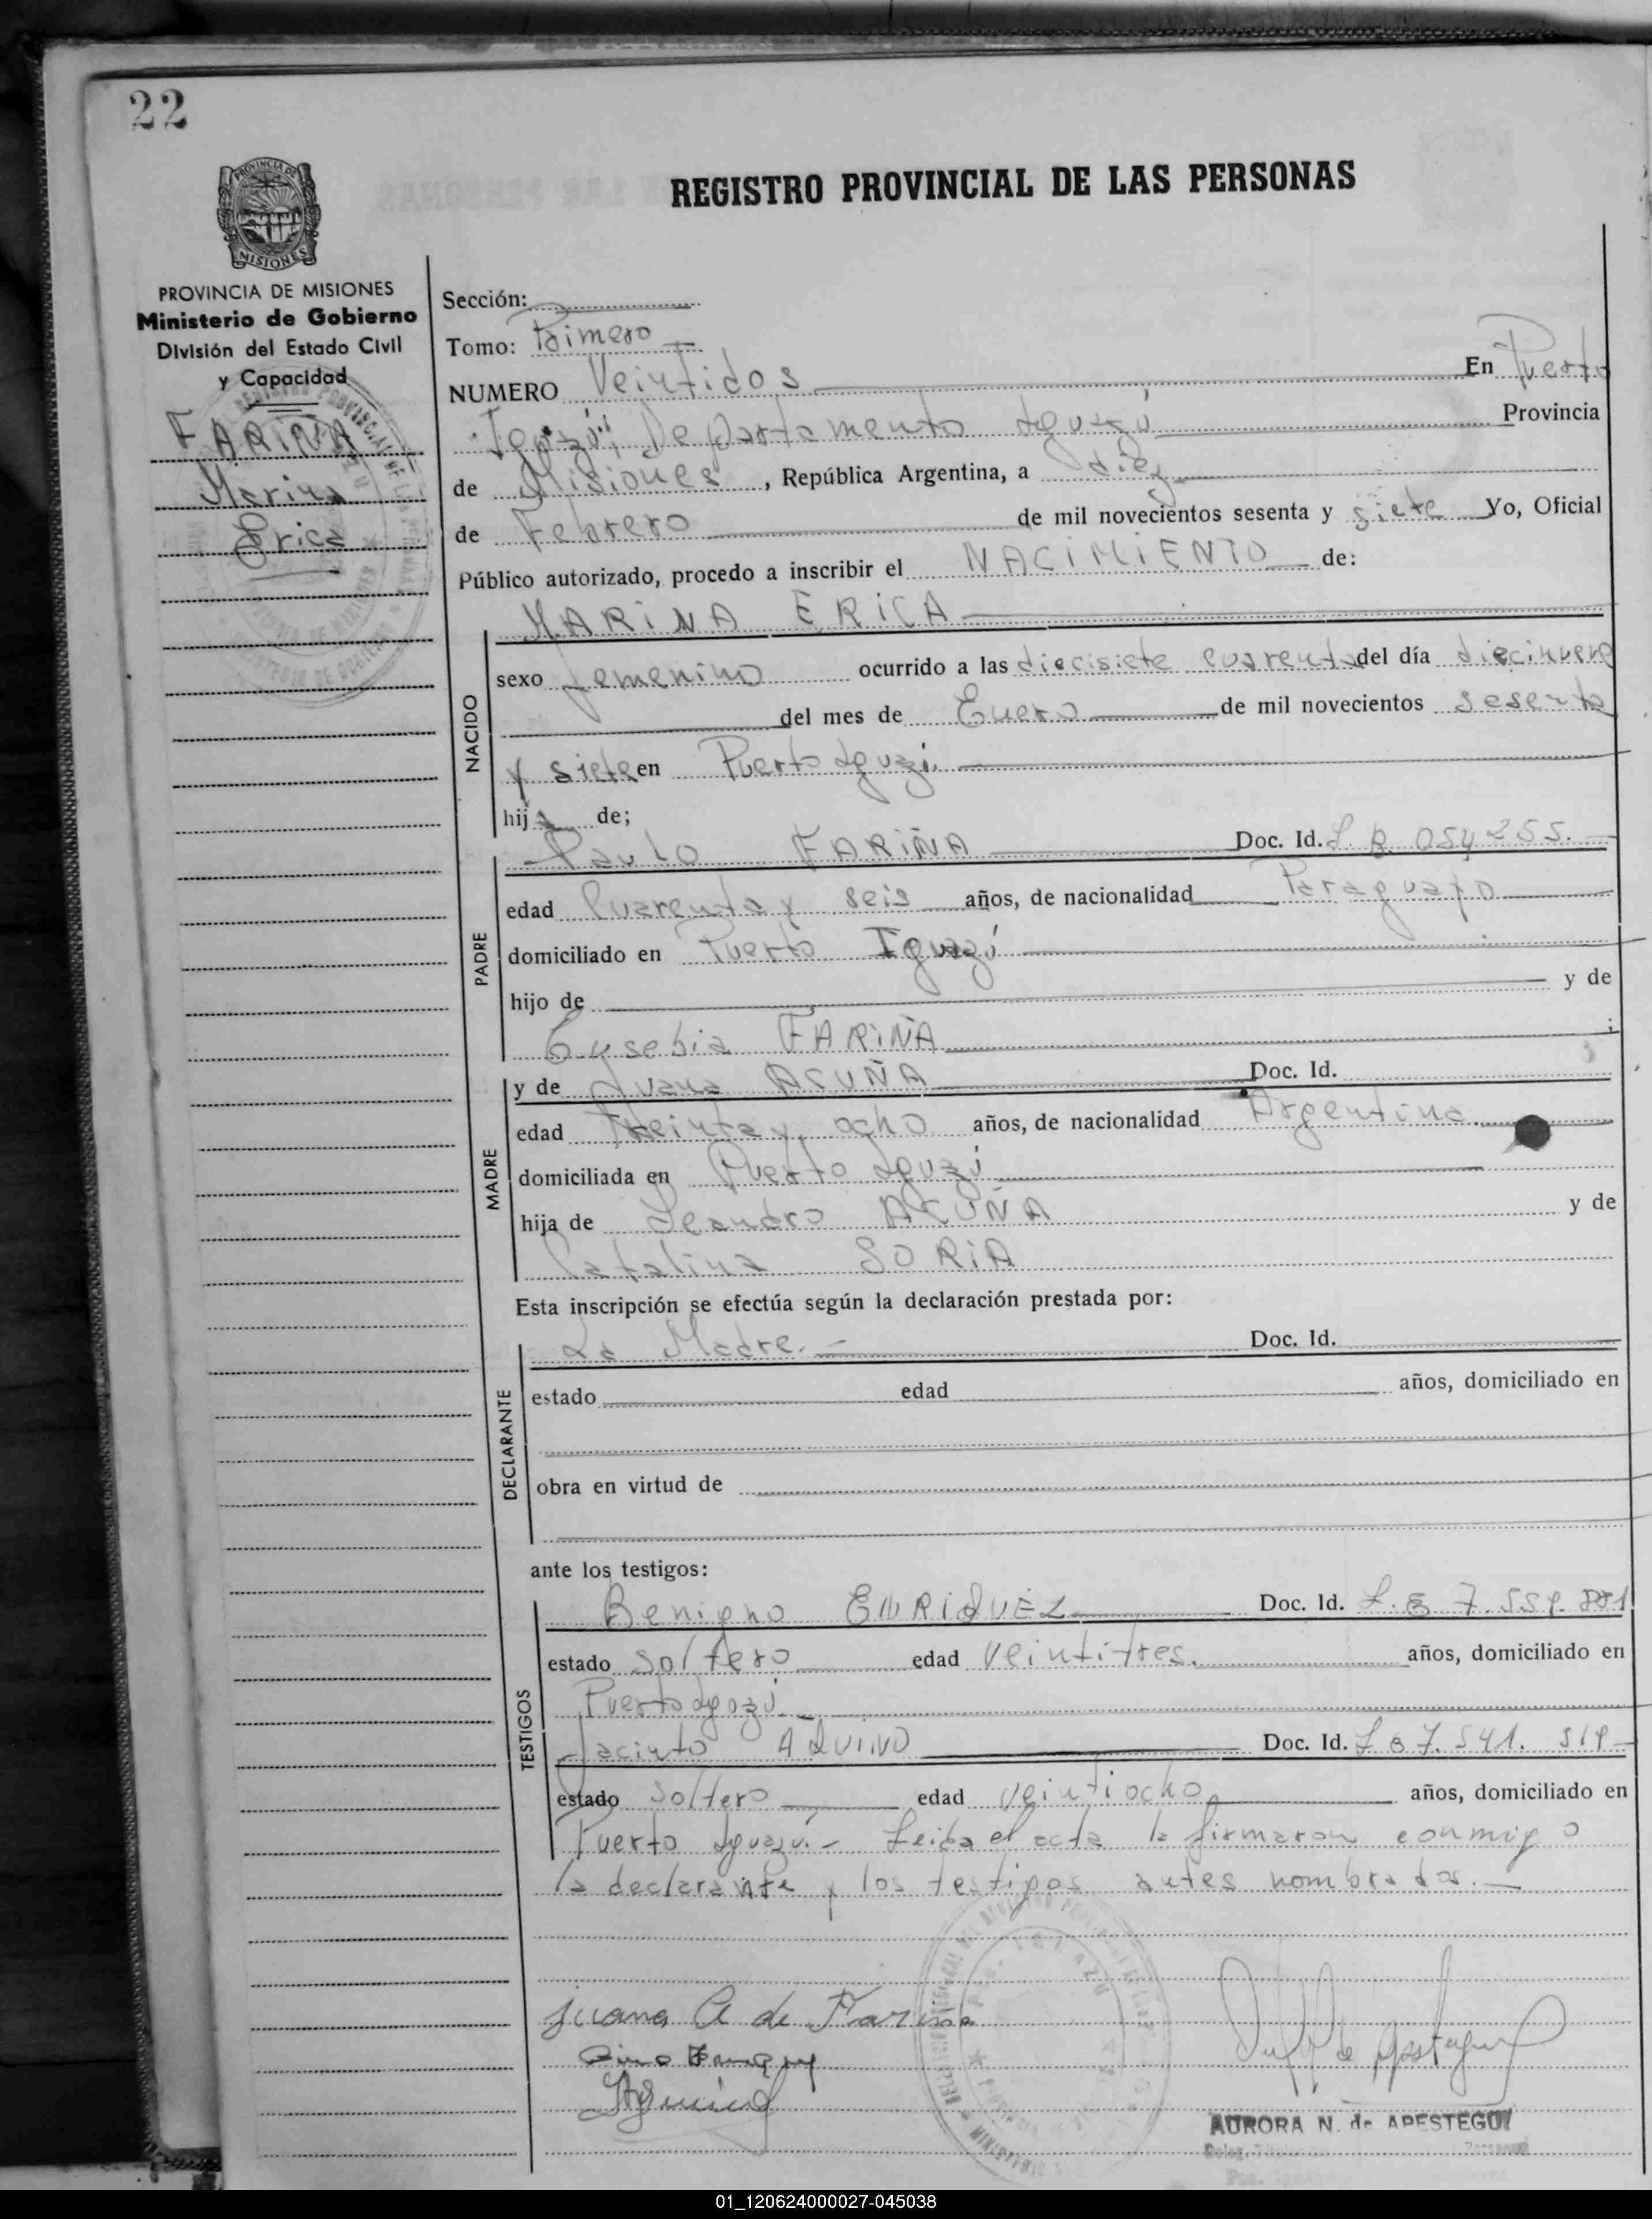 22
PROVINCIA DE
MISIONES
REGISTRO PROVINCIAL DE LAS PERSONAS
PROVINCIA DE MISIONES
Ministerio de Gobierno
División del Estado Civil
y Capacidad
FARIÑA
Marina
Erica
Sección:
Tomo: Primero
NUMERO Veintidos En Puerto
Iguazú, Departamento Iguazú Provincia
de Misiones, República Argentina, a diez
de Febrero de mil novecientos sesenta y siete Yo, Oficial
Público autorizado, procedo a inscribir el NACIMIENTO de:
MARINA ERICA
NACIDO
sexo femenino ocurrido a las diecisiete cuarenta del día diecinueve
del mes de Enero de mil novecientos sesenta
y siete en Puerto Iguazú
hija de;
PADRE
Paulo FARIÑA Doc. Id. 054255.
edad Cuarenta y seis años, de nacionalidad Paraguayo
domiciliado en Puerto Iguazú
hijo de y de
Eusebia FARIÑA ;
MADRE
y de Juana ACUÑA Doc. Id.
edad treinta y ocho años, de nacionalidad Argentina.
domiciliada en Puerto Iguazú
hija de Leandro ACUÑA y de
Catalina SORIA
Esta inscripción se efectúa según la declaración prestada por:
DECLARANTE
La Madre.- Doc. Id.
estado edad años, domiciliado en
obra en virtud de
ante los testigos:
TESTIGOS
Benigno ENRIQUEZ Doc. Id.
estado soltero edad veintitres. años, domiciliado en
Puerto Iguazú
Jacinto AQUINO Doc. Id.
estado soltero edad veintiocho años, domiciliado en
Puerto Iguazú.- Leida el acta la firmaron conmigo
la declarante y los testigos antes nombrados.
Juana A de Fariña
AURORA N. de APESTEGUI
01_120624000027-045038